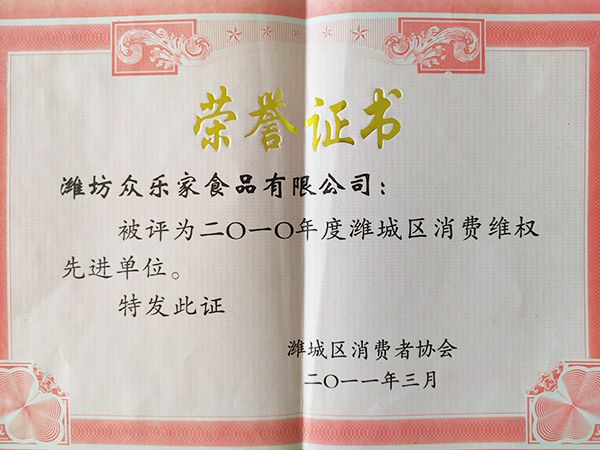 荣誉证书
潍坊众乐家食品有限公司：
被评为二〇一〇年度潍城区消费维权
先进单位。
特发此证
潍城区消费者协会
二〇一一年三月